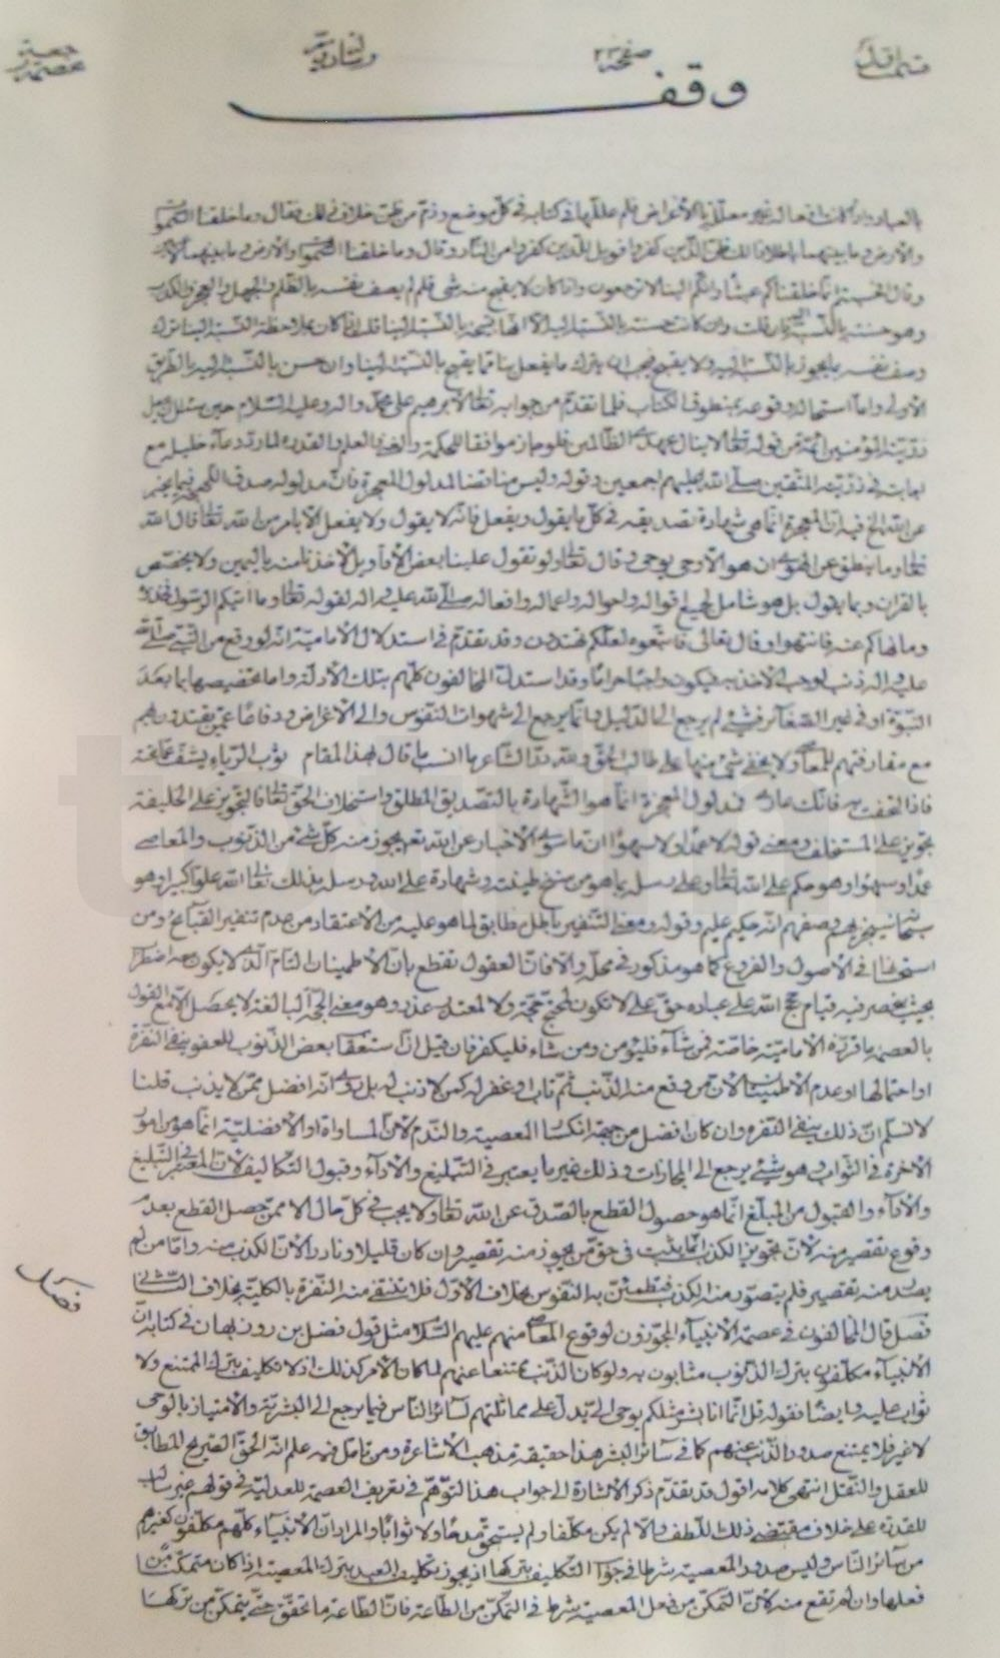 قسمة اول صفحة ٢٣ رسالة عصمة
وقف
بالعباد وان كانت افعاله غير معللة بالأغراض فلم عللها في كتابه في كل موضع وذم من ظن خلاف ذلك فقال وما خلقنا السموات
والأرض وما بينهما باطلا ذلك ظن الذين كفروا فويل للذين كفروا من النار وقال وما خلقنا السموات والأرض وما بينهما لاعبين
وقال افحسبتم انما خلقناكم عبثا وانكم الينا لا ترجعون واذا كان لا يقبح منه شيء فلم لم يصف نفسه بالظلم والجهل والعجز والكذب
وهو حسن بالنسبة اليه فان قلت وان كانت حسنة بالنسبة اليه الا انها قبيحة بالنسبة الينا قلت اذا كان بملاحظة النسبة الينا ترك
وصف نفسه بما يجوز بالنسبة اليه ولا يقبح فيجب ان يترك ما يفعل بنا مما يقبح بالنسبة الينا وان حسن بالنسبة اليه بالطريق
الأولى واما استحالة وقوعه بمنطوق الكتاب فلما تقدم من جوابه تعالى لابرهيم على محمد واله وعليه السلام حين سئل نيل
ذريته المؤمنين ائمة من قوله تعالى لا ينال عهدي الظالمين فلو جاز موافقا للحكمة والغنى والعلم والقدرة لما رد دعاء خليله مع
اجابته في ذريته المتقين صلى الله عليهم اجمعين وقوله وليس مناقضا لمدلول المعجزة فان مدلوله صدق اللهجة فيما يخبر
عن الله الخ فيه ان المعجزة انما هي شهادة تصديقه في كل ما يقول ويفعل فانه لا يقول ولا يفعل الا بامر من الله تعالى قال الله
تعالى وما ينطق عن الهوى ان هو الا وحي يوحى وقال تعالى ولو تقول علينا بعض الأقاويل لأخذنا منه باليمين ولا يختص
بالقران وبما يقول بل هو شامل لجميع اقواله واحواله واعماله وافعاله صلى الله عليه واله لقوله تعالى وما اتيكم الرسول فخذوه
وما نهاكم عنه فانتهوا وقال تعالى فاتبعوه لعلكم تهتدون وقد تقدم في استدلال الأمامية انه لو وقع من النبي صلى الله
عليه واله ذنب لوجب الأخذ به فيكون واجبا حراما وقد استدل المخالفون كلهم بتلك الأدلة واما تخصيصها بما بعد
النبوة او في غير الصغائر فشيء لم يرجع الى الدليل وانما يرجع الى شهوات النفوس والى الأغراض ودفاعا عمن يقتدون بهم
مع مقارفتهم للمعاصي ولا يخفى شيء منها على طالب الحق ولله در الشاعر ما انسب ما قال لهذا المقام ثوب الرياء يشف عما تحته
فاذا التحفت به فانك عار فمدلول المعجزة انما هو الشهادة بالتصديق المطلق واستخلاف الحق تعالى فالتجويز على الخليفة
تجويز على المستخلف ومعنى قوله لا عمدا ولا سهوا ان ما سوى الأخبار عن الله تعالى يجوز منه كل شيء من الذنوب والمعاصي
عمدا وسهوا وهو حكم على الله تعالى وعلى رسله بما هو من سنخ طينته وشهادة على الله ورسله بذلك تعالى الله علوا كبيرا وهو
سبحانه سيجزيهم وصفهم انه حكيم عليم وقوله ومعنى التنفير باطل مطابق لما هو عليه من الأعتقاد من عدم تنفير القبائح ومن
استحقا في الأصول والفروع كما هو مذكور في محله والا فان العقول تقطع بان الأطمينان التام الذي لا يكون معه اضطراب
بحيث ينحصر فيه قيام حجج الله على عباده حتى لا تكون لمحتج حجة ولا لمعتذر عذر وهو معنى الحجة البالغة لا يحصل الا مع القول
بالعصمة بما قرره الأمامية خاصة فمن شاء فليؤمن ومن شاء فليكفر فان قيل ان استعقاب بعض الذنوب للعفو ينفي النفرة
او احتمالها او عدم الأطمينان لان من وقع منه الذنب ثم تاب وغفر له كمن لا ذنب له بل روى انه افضل ممن لا يذنب قلنا
لا نسلم ان ذلك ينفي النفرة وان كان افضل من جهة انكسار المعصية والندم لان المساواة او الأفضلية انما هو من امور
الاخرة في الثواب وهو شيء يرجع الى المجازات وذلك غير ما يعتبر في التبليغ والأداء وقبول التكاليف لان المعتبر في التبليغ
والأداء والقبول من المبلغ انما هو حصول القطع بالصدق عن الله تعالى ولا يجب في كل حال الا ممن حصل القطع بعدم
وقوع تقصير منه لان تجويز الكذب انما يثبت في حق من يجوز منه تقصير وان كان قليلا ونادرا لان الكذب منه واما من لم
يصدر منه تقصير فلم يتصور منه الكذب فتطمئن به النفوس بخلاف الأول فلا تنتفي منه النفرة بالكلية بخلاف الثاني
فصل
فصل قال المخالفون في عصمة الأنبياء المجوزون لوقوع المعاصي منهم عليهم السلام مثل قول فضل بن روزبهان في كتابه ان
الأنبياء مكلفون بترك الذنوب مثابون به ولو كان الذنب ممتنعا عنهم لما كان الأمر كذلك اذ لا تكليف بترك الممتنع ولا
ثواب عليه وايضا فقوله قل انما انا بشر مثلكم يوحى الي يدل على مماثلتهم لسائر الناس فيما يرجع الى البشرية والأمتياز بالوحي
لا غير فلا يمتنع صدور الذنب عنهم كما في سائر البشر هذا حقيقة مذهب الأشاعرة ومن تأمل فيه علم انه الحق الصريح المطابق
للعقل والنقل انتهى كلامه اقول قد تقدم ذكر الأشارة الى جواب هذا التوهم في تعريف العصمة للعدلية في قولهم غير سالب
للقدرة على خلاف مقتضى ذلك اللطف والا لم يكن مكلفا ولم يستحق مدحا ولا ثوابا والمراد ان الأنبياء كلهم مكلفون كغيرهم
من سائر الناس وليس صدور المعصية شرطا في جواز التكليف بتركها اذ يجوز تكليف العبد بترك المعصية اذا كان متمكنا من
فعلها وان لم تقع منه لأن التمكن من فعل المعصية شرط في التمكن من الطاعة فان الطاعة ما تتحقق حتى يتمكن من تركها